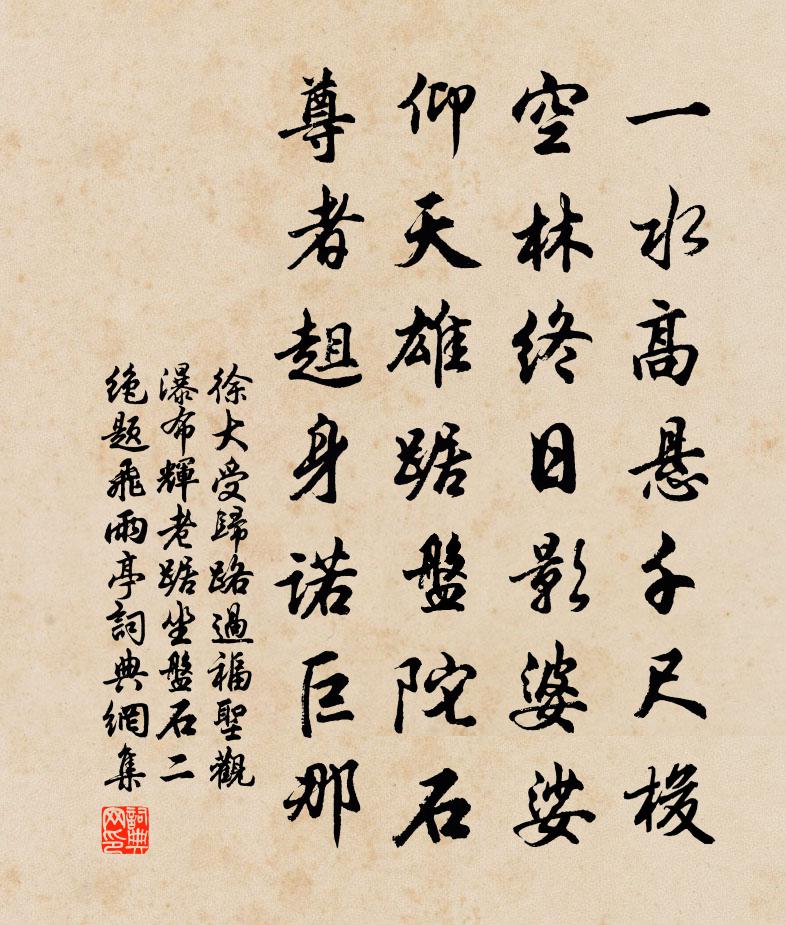 一水高懸千尺梭
空林終日影婆娑
仰天雄踞盤陀石
尊者趄身諾巨那
徐大受歸路過福聖觀
瀑布輝老踞坐盤石二
絶題飛雨亭詞典網集
詞典网印